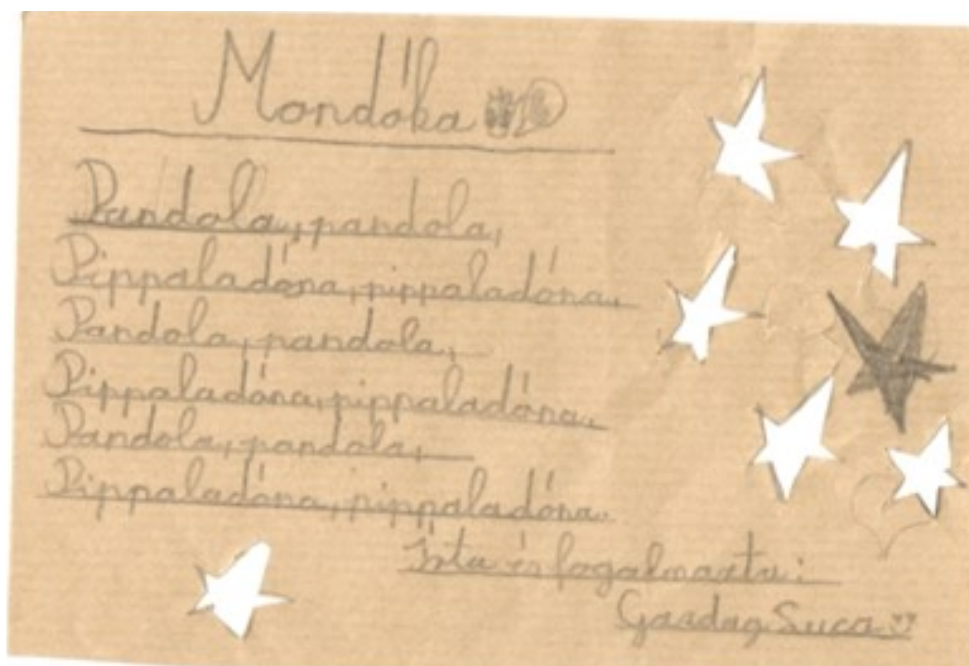 Mondóka
Pandola, pandola,
Pippaladóna, pippaladóna.
Pandola, pandola,
Pippaladóna, pippaladóna.
Pandola, pandola,
Pippaladóna, pippaladóna.
Írta és fogalmazta:
Gazdag Suca